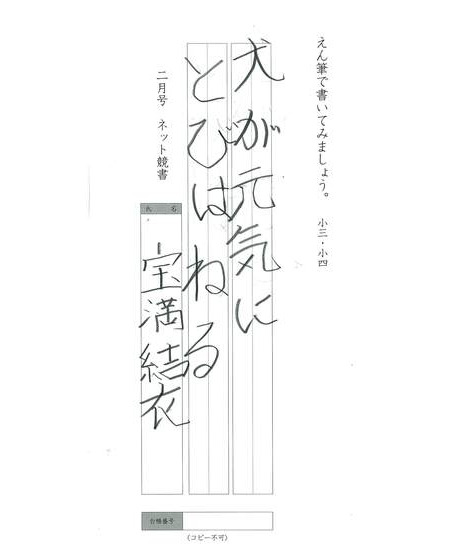 えん筆で書いてみましょう。 小三・小四
犬が元気に
とびはねる
二月号 ネット競書
氏名
宝満結衣
台帳番号
(コピー不可)